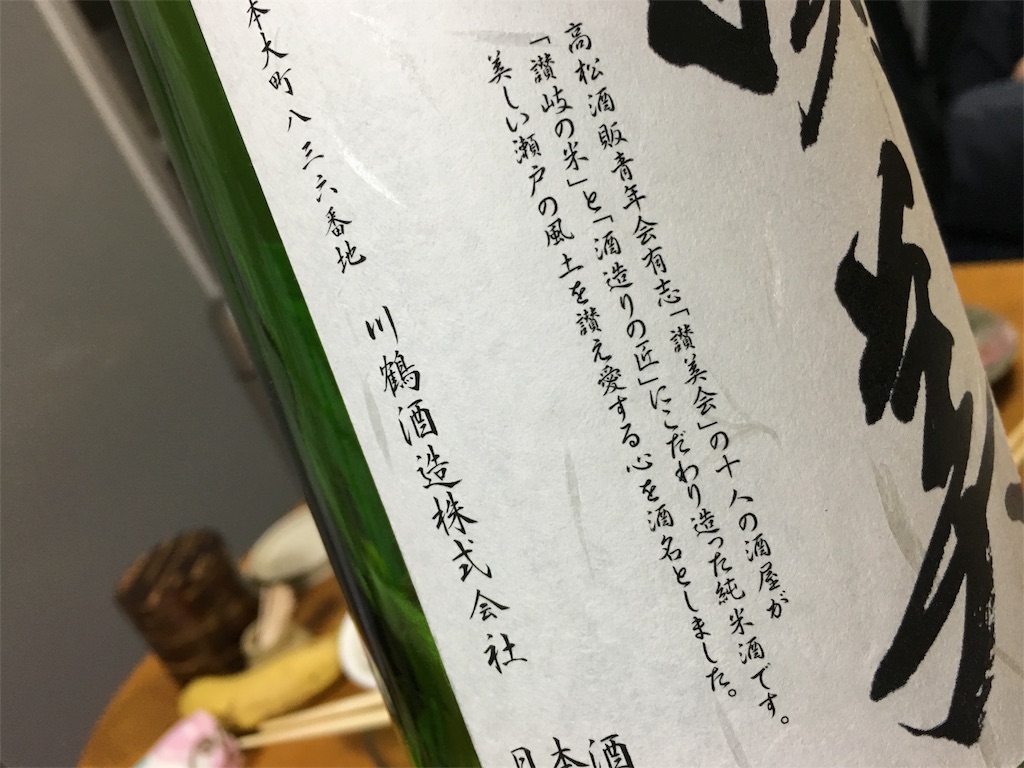 高松酒販青年会有志「讃美会」の十人の酒屋が
「讃岐の米」と「酒造りの匠」にこだわり造った純米酒です。
美しい瀬戸の風土を讃え愛する心を酒名としました。
本大町八三六番地 川鶴酒造株式会社
日本酒